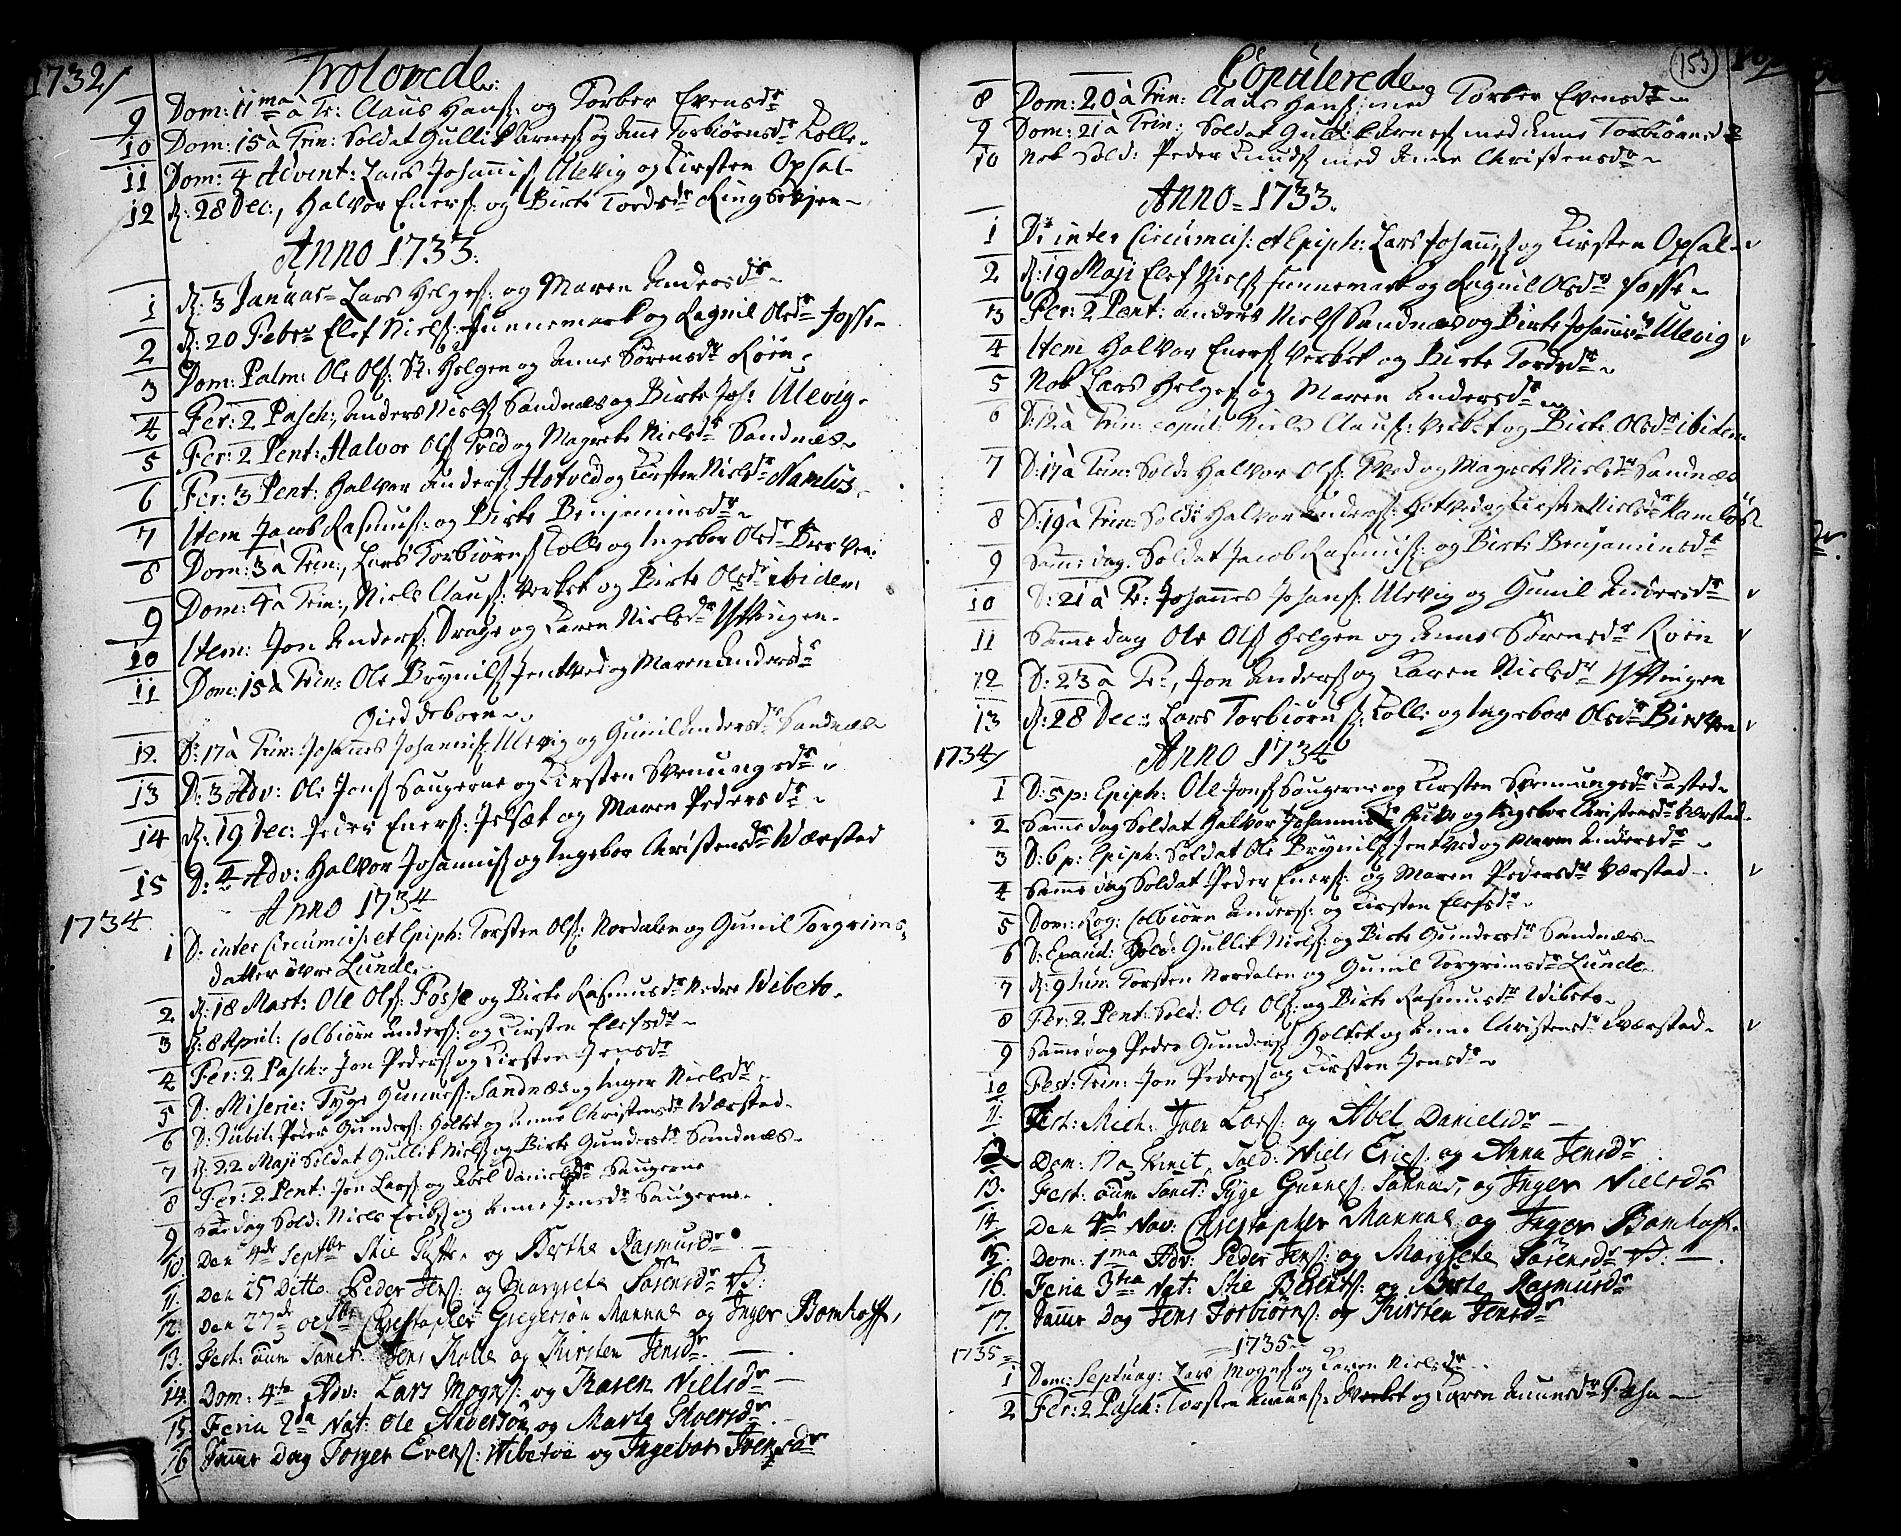 1732/
Trolovede.
9 Dom: 11ma à Tr: Claus Hans: og Torber Evensdr
10 Dom: 15 à Trin: Soldat Gullik Arnes: og Anne Torbiørnsdr Kolle
11 Dom: 4 Advent: Lars Johannis: Ulevig og Kirsten Opsal
12 D: 28 Dec:, Halvor Eners: og Birte Tordsdr
Anno 1733.
1 D: 3 Januar Lars Helges: og Maren Andersdr
2 D: 20 Febr Elef Niels: Funnemark og Ragnil Olsdr Fosse
3 Dom: Palm: Ole Ols: St: Helgen og Anne Sørensdr Røin
4 Fer: 2 Pasch:, Anders Niels: Sandnæs og Birte Joh: Ulevig
5 Fer: 2 Pent: Halvor Ols: og Magrete Nielsdr Sandnæs
6 Fer: 3 Pent: Halvor Anders: Hotved og Kirsten Nielsdr Namløs
7 Item Jacob Rasmus: og Birte Benjaminsdr
8 Dom: 3 à Trin:, Lars Torbiørns: Kolle og Ingebor Olsdr
9 Dom: 4 à Trin:, Niels Claus: Verket og Birte Olsdr ibidem
10 Item: Jon Anders: Drage og Karen Nielsdr
11 Dom: 15 à Trin: Ole Brynils: Jentved og Maren Andersdr
Gieddeboren
12. D: 17 à Trin: Johannes Johannis: Ulevig og Gunil Andersdr Sandnæs
13 D: 3 Adv: Ole Jons: Saugerne og Kirsten Svenungsdr
14 D: 19 Dec: Peder Eners: og Maren Pedersdr
15 D: 4 Adv: Halvor Johannis: og Ingebor Christensdr Værstad
1734
Anno 1734
1 D: inter Circumcis: et Epiph: Torsten Ols: Nordalen og Gunil Torgrims-
datter øvre Lunde
2 D: 18 Mart: Ole Ols: Fosse og Birte Rasmusdr Nedre Vibeto
3 D: 8 April: Colbiørn Anders: og Kirsten Elefsdr
4 Fer: 2 Pasch: Jon Peders: og Kirsten Jensdr
5 D: Miserie: Tyge Gunnes: Sandnæs og Inger Nielsdr
6 D: Jubil: Peder Gunders: Holtet og Anne Christensdr Værstad
7 D: 22 Maji Soldat Gullik Niels: og Birte Gundersdr Sandnæs
8 Fer: 2 Pent: Jon Lars: og Abel Danielsdr Saugerne
9 dag Sold: Niels Erichs: og Anne Jensdr Saugerne
10. Den 4de Septbr Stie og Berthe Rasmusdr
11. den 25 Ditto Peder Jens: og Margrete Sørensdr
12. den 27de octbr Christopher Gregersøn Mannal og Inger Bomhoff
13. Fest: oum Sanct: Jens Kolle og Kirsten Jensdr
14. Dom: 4ta Adv: Lars Mogns: og Karen Nielsdr
15. Feria 2da Nat: Ole Andersøn og Marte
16 Samme Dag Torger Evens: Wibetoe og Ingebor
153
Copulerede
8 Dom: 20 à Trin: Claus Hans: med Torber Evensdr
9 Dom: 21 à Trin: Soldat Gullik Arnes: med Anne Torbiørnsdr
10 Nok Sold: Peder Knuds: med Anne Christensdr
Anno 1733.
1 D: inter Circumcis: et Epiph: Lars Johannis: og Kirsten Opsal
2 D: 19 Maji Elef Niels: Funnemark og Ragnil Olsdr Fosse
3 Fer: 2 Pent: Anders Niels: Sandnæs og Birte Johannisdr Ulevig
4 Item Halvor Eners: Verket og Birte Tordsdr
5 Nok Lars Helges: og Maren Andersdr
6 D: 12 à Trin: copul: Niels Claus: Verket og Birte Olsdr ibidem
7 D: 17 à Trin: Sold: Halvor Ols: og Magrete Nielsdr Sandnæs
8 D: 19 à Trin: Sold: Halvor Anders: Hotved og Kirsten Nielsdr Namløs
9 Samme dag: Soldat Jacob Rasmus: og Birte Benjaminsdr
10 D: 21 à Tr: Johannes Johans: Ulevig og Gunil Andersdr
11 Samme dag Ole Ols: Helgen og Anne Sørensdr Røin
12 D: 23 à Tr:, Jon Anders: og Karen Nielsdr
13 D: 28 Dec: Lars Torbiørns: Kolle og Ingebor Olsdr
1734/
Anno 1734
1 D: 5 p: Epiph: Ole Jons: Saugerne og Kirsten Svenungsdr
2 Samme dag Soldat Halvor Johannis: og Ingebor Christensdr Værstad
3 D: 6 p: Epiph: Soldat Ole Brynils: Jentved og Maren Andersdr
4 Samme dag Soldat Peder Eners: og Maren Pedersdr Værstad
5 Dom: Rog: Colbiørn Anders: og Kirsten Elefsdr
6 D: Exaud: Sold: Gullik Niels: og Birte Gundersdr Sandnæs
7 D: 9 Jun: Torsten Nordalen og Gunil Torgrimsdr Lunde
8 Fer: 2 Pent: Sold: Ole Ols: og Birte Rasmusdr Vibeto
9 Samme dag Peder Gunders: Holtet og Anne Christensdr Værstad
10 Fest: Trin: Jon Peders: og Kirsten Jensdr
11. Fest: Mich: Joen Lars: og Abel Danielsdr
12 Dom: 17 a Trinit, Sold: Niels Erics: og Anna Jensdr
13. Fest: oum Sanct: Tyge Gunnes: Sannæs, og Inger Nielsdr
14. Den 4de Nov: Christopher Mannal og Inger Bomhoff.
15. Dom: 1ma Adv: Peder Jens: og Margrete Sørensdr
16. Feria 3tia Nat: Stie og Birte Rasmusdr
17. Samme Dag Jens Torbiørns: og Kirsten Jensdr
1735
1735
1 Dom: Septuag: Lars Mogns: og Karen Nielsdr
2 Fer: 2 Pasch: Torsten og Karen